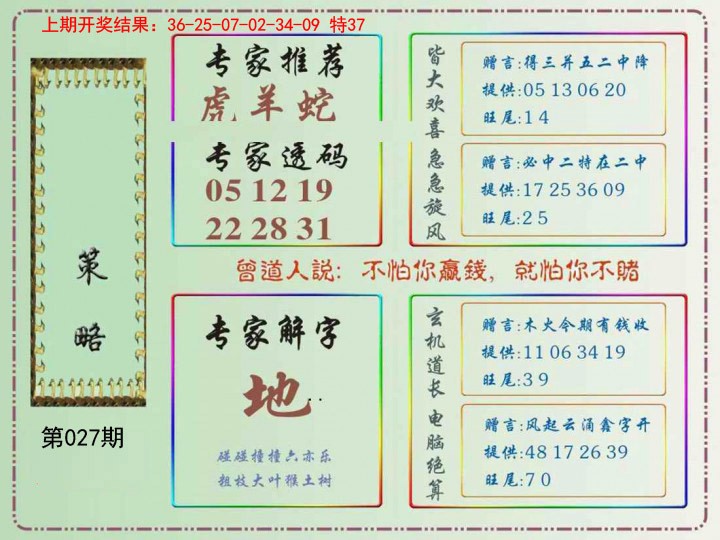 上期开奖结果：36-25-07-02-34-09 特37
策略
第027期
专家推荐
虎羊蛇
专家透码
05 12 19
22 28 31
皆大欢喜
赠言:得三并五二中降
提供:05 13 06 20
旺尾:1 4
急急旋风
赠言:必中二特在二中
提供:17 25 36 09
旺尾:2 5
曾道人説: 不怕你赢錢, 就怕你不賭
专家解字
地..
碰碰撞撞六亦乐
粗枝大叶猴土树
玄机道长
赠言:木火今期有钱收
提供:11 06 34 19
旺尾:3 9
电脑绝算
赠言:风起云涌鑫字开
提供:48 17 26 39
旺尾:7 0